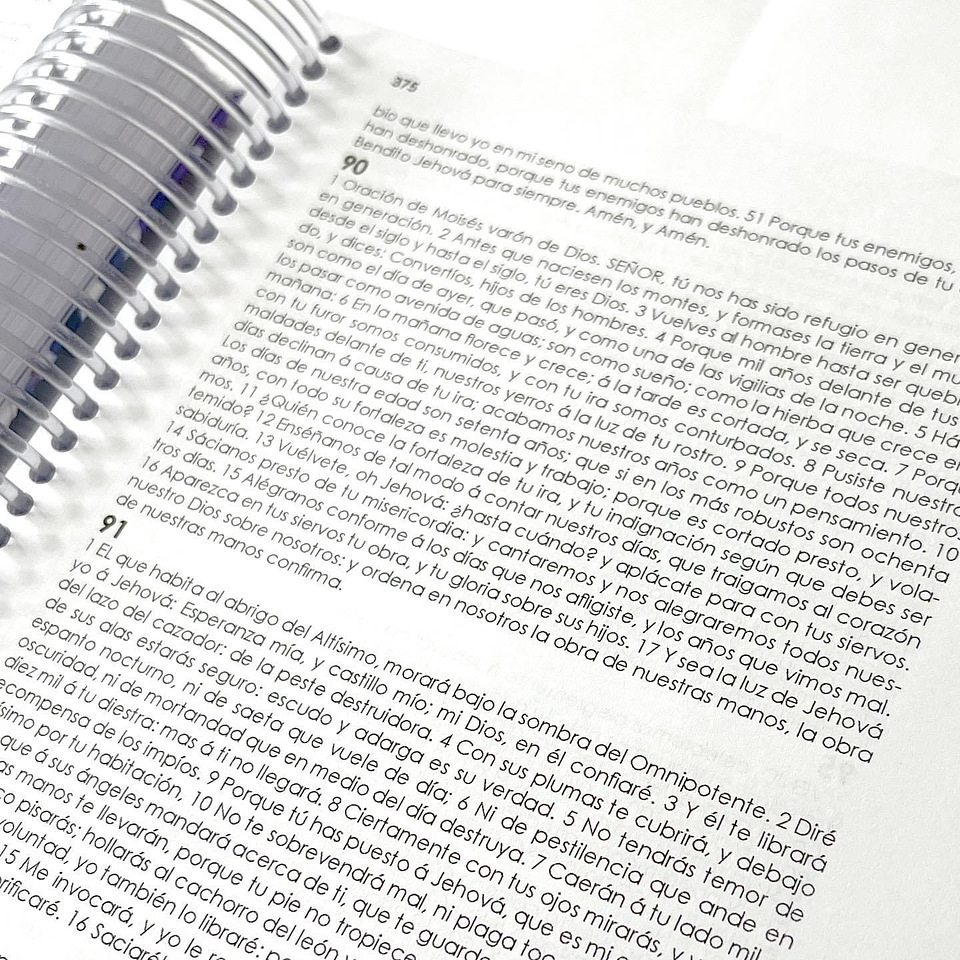 375
bio que llevo yo en mi seno de muchos pueblos. 51 Porque tus enemigos,
han deshonrado, porque tus enemigos han deshonrado los pasos de tu
Bendito Jehová para siempre. Amén, y Amén.
90
1 Oración de Moisés varón de Dios. SEÑOR, tú nos has sido refugio en
en generación. 2 Antes que naciesen los montes, y formases la tierra y el
desde el siglo y hasta el siglo, tú eres Dios. 3 Vuelves al hombre hasta ser
do, y dices: Convertíos, hijos de los hombres. 4 Porque mil años delante de tus
son como el día de ayer, que pasó, y como una de las vigilias de la noche. 5
los pasar como avenida de aguas; son como sueño; como la hierba que crece
mañana: 6 En la mañana florece y crece; á la tarde es cortada, y se seca. 7
con tu furor somos consumidos, y con tu ira somos conturbados. 8 Pusiste
maldades delante de ti, nuestros yerros á la luz de tu rostro. 9 Porque todos nuestros
días declinan á causa de tu ira; acabamos nuestros años como un pensamiento. 10
Los días de nuestra edad son setenta años; que si en los más robustos son ochenta
años, con todo su fortaleza es molestia y trabajo; porque es cortado presto, y vola-
mos. 11 ¿Quién conoce la fortaleza de tu ira, y tu indignación según que debes ser
temido? 12 Enséñanos de tal modo á contar nuestros días, que traigamos al corazón
sabiduría. 13 Vuélvete, oh Jehová: ¿hasta cuándo? y aplácate para con tus siervos.
14 Sácianos presto de tu misericordia: y cantaremos y nos alegraremos todos nues-
tros días. 15 Alégranos conforme á los días que nos afligiste, y los años que vimos mal.
16 Aparezca en tus siervos tu obra, y tu gloria sobre sus hijos. 17 Y sea la luz de Jehová
nuestro Dios sobre nosotros: y ordena en nosotros la obra de nuestras manos, la obra
de nuestras manos confirma.
91
1 EL que habita al abrigo del Altísimo, morará bajo la sombra del Omnipotente. 2 Diré
yo á Jehová: Esperanza mía, y castillo mío; mi Dios, en él confiaré. 3 Y él te librará
del lazo del cazador: de la peste destruidora. 4 Con sus plumas te cubrirá, y debajo
de sus alas estarás seguro: escudo y adarga es su verdad. 5 No tendrás temor de
espanto nocturno, ni de saeta que vuele de día; 6 Ni de pestilencia que ande en
oscuridad, ni de mortandad que en medio del día destruya. 7 Caerán á tu lado mil,
diez mil á tu diestra: mas á ti no llegará. 8 Ciertamente con tus ojos mirarás, y
de los impíos. 9 Porque tú has puesto á Jehová, que es mi
por tu habitación, 10 No te sobrevendrá mal, ni plaga
que á sus ángeles mandará acerca de ti, que te
manos te llevarán, porque tu pie no tropiece
pisarás; hollarás al cachorro del león
voluntad, yo también lo libraré:
15 Me invocará, y yo le
16